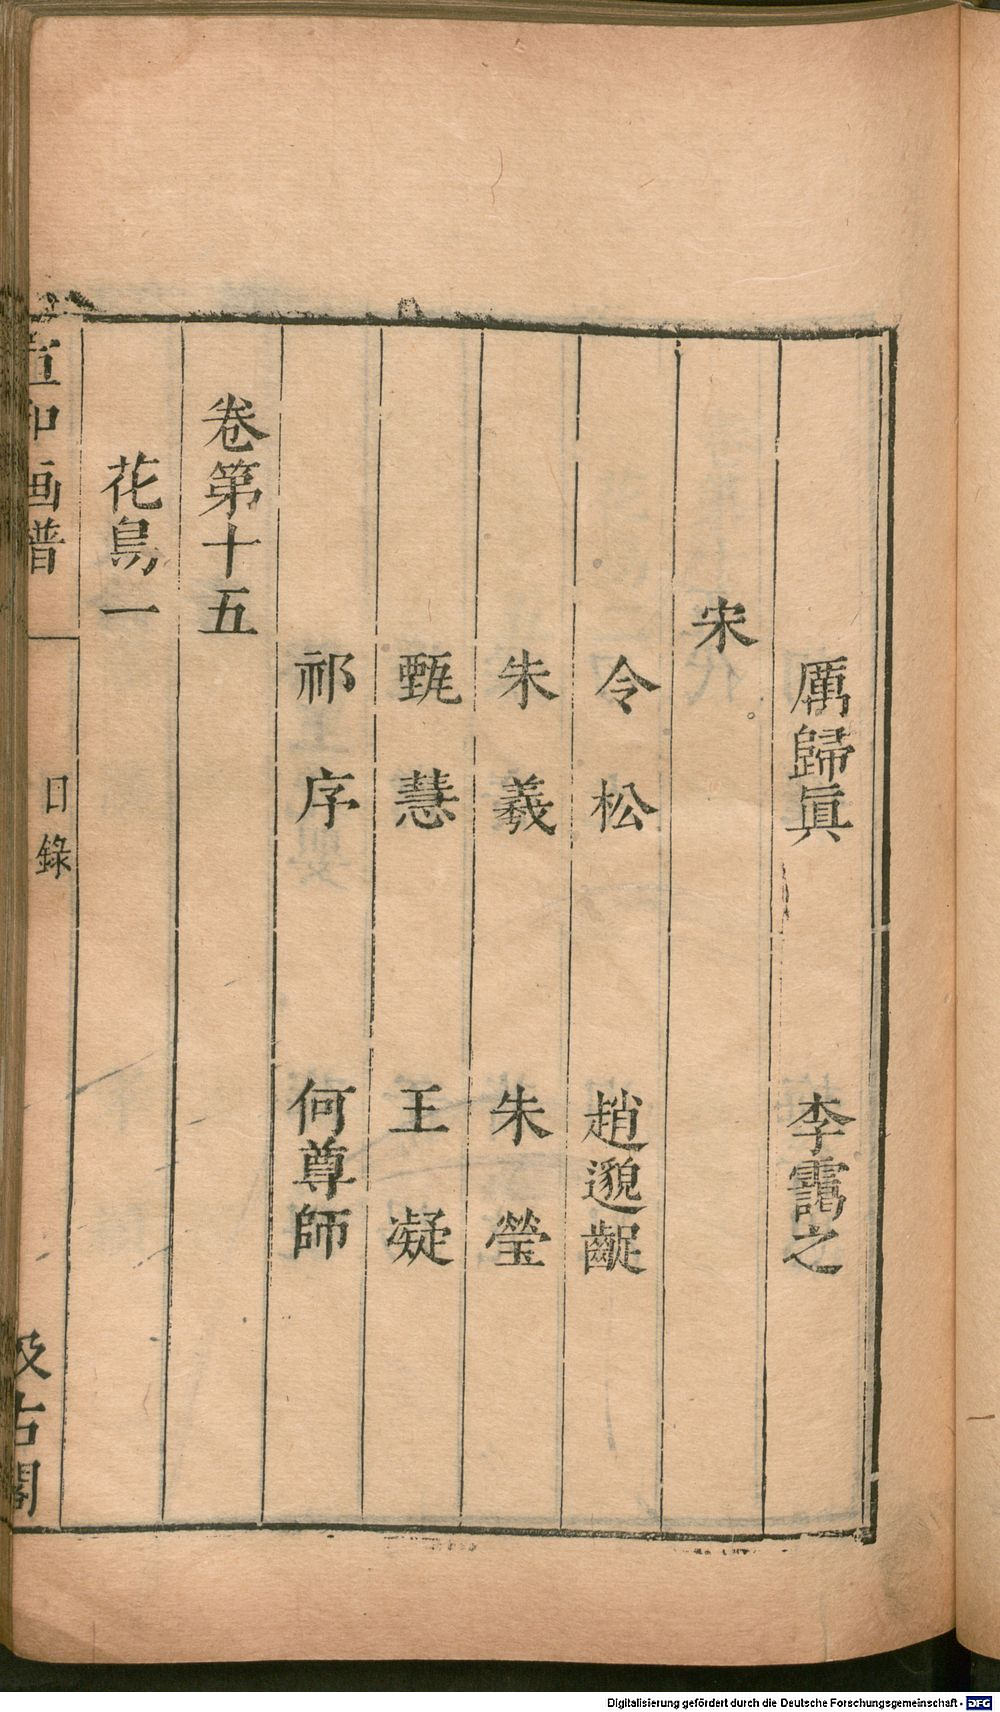 厲歸眞　李靄之
宋
令松　趙邈齪
朱羲　朱瑩
甄慧　王凝
祁序　何尊師
卷第十五
花鳥一
宣和画普
目錄
汲古閣
Digitalisierung gefördert durch die Deutsche Forschungsgemeinschaft - DFG